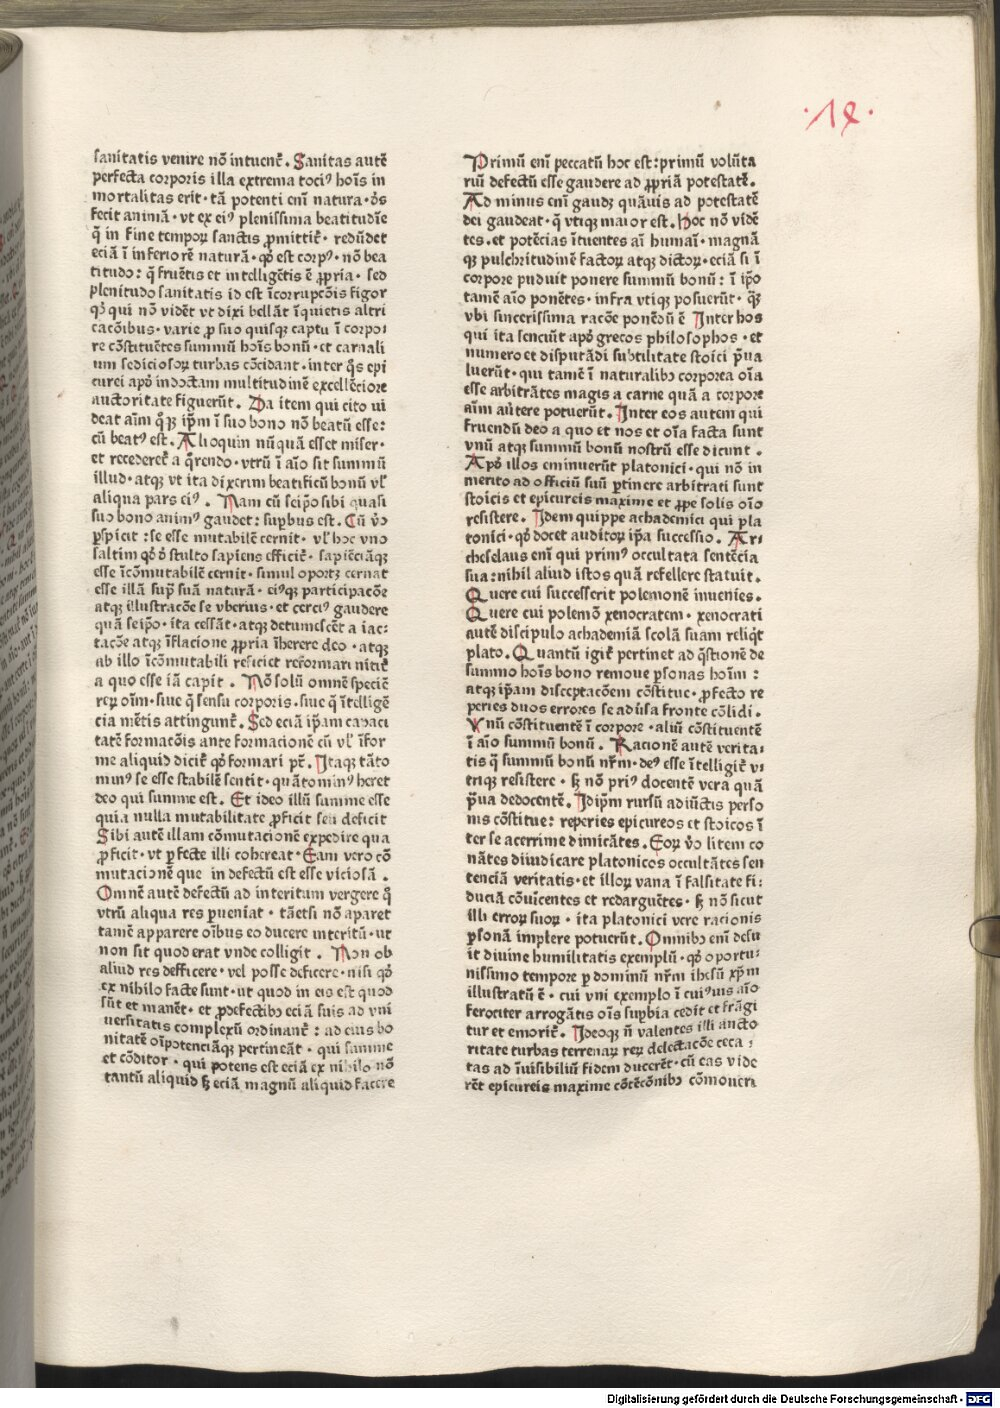 ·14·
sanitatis venire nō intuent̄. Sanitas autē
perfecta corporis illa extrema tociꝰ hoīs in
mortalitas erit · tā potenti eni natura · ꝺs
fecit animā · vt ex eiꝰ plenissima beatitudīe
q̄ in fine tempoꝝ sanctis ꝓmittit̄ · redūdet
eciā ī inferiorē naturā · qꝺ est corpꝰ · nō bea
titudo: q̄ fruētis et intelligētis ē ꝓpria · sed
plenitudo sanitatis id est īcorrupcōis figor
qꝺ qui nō vidēt vt dixi bellāt īquietis altri
cacōibus · varie ꝓ suo quisqꝫ captu ī corpo:
re cōstituētes summū hoīs bonū · et carnali
um sediciosoꝝ turbas cōcidant · inter q̄s epi
curei apꝺ indoctam multitudinē excellēciore
auctoritate figuerūt . Da item qui cito vi
deat aīm qꝫ ip̄m ī suo bono nō beatū esse:
cū beatꝰ est. Alioquin nūquā esset miser ·
et recederet̄ a q̄rendo · vtrū ī aīo sit summū
illud · atqꝫ vt ita dixerim beatificū bonū vl̄
aliqua pars eiꝰ . Nam cū seip̄o sibi quasi
suo bono animꝰ gaudet: suꝑbus est. Cū v̄o
ꝑspicit: se esse mutabilē cernit · vl̄ hoc vno
saltim qꝺ ꝺ stulto sapiens efficit̄ · sapiēciāqꝫ
esse īcōmutabilē cernit · simul oportꝫ cernat
esse illā supͣ suā naturā · eiꝰqꝫ participacōe
atqꝫ illustracōe se vberius · et cerciꝰ gaudere
quā seip̄o · ita cessāt · atqꝫ detumescēt a iac:
tacōe atqꝫ īflacione ꝓpria īherere deo · atqꝫ
ab illo īcōmutabili refici et reformari nitit̄
a quo esse iā capit . Nō solū omnē speciē
reꝝ oīm · siue q̄ sensu corporis · siue q̄ ītelligē
cia mētis attingunt̄. Sed eciā ip̄am capaci
tatē formatōis ante formacionē cū vl̄ īfor
me aliquid dicit̄ qꝺ formari pt̄. Itaqꝫ tāto
minꝰ se esse stabilē sentit · quāto minꝰ heret
deo qui summe est. Et ideo illū summe esse
quia nulla mutabilitate ꝓficit seu deficit
Sibi autē illam cōmutacionē expedire qua
ꝓficit · vt ꝑfecte illi cohereat · Eam vero cō
mutacionē que in defectū est esse viciosā .
Omnē autē defectū ad interitum vergere qꝺ
vtrū aliqua res ꝑueniat · tāetsi nō aparet
tamē apparere oībus eo ducere interitū · ut
non sit quod erat vnde colligit . Non ob
aliud res defficere · vel posse deficere · nisi qꝺ
ex nihilo facte sunt · ut quod in eis est quod
sūt et manēt · et ꝓ defectibꝰ eciā suis ad vni
uersitatis complexū ordinant̄ : ad eius bo
nitatē oīpotenciāqꝫ pertineāt · qui summe
et cōditor · qui potens est eciā ex nihilo nō
tantū aliquid sꝫ eciā magnū aliquid facere
Primū eni peccatū hoc est: primū volūta
riū defectū esse gaudere ad ꝓpriā potestatē.
Ad minus eni gaudꝫ quāuis ad potestatē
dei gaudeat · q̄ vtiqꝫ maior est. Hoc nō vidē
tes · et potēcias ītuentes aī humāī · magnā
qꝫ pulchritudinē factoꝝ atqꝫ dictoꝝ · eciā si ī
corpore puduit ponere summū bonū: ī ip̄o
tamē aīo ponētes · infra vtiqꝫ posuerūt · q̄ꝫ
vbi sincerissima racōe ponēdū ē Inter hos
qui ita senciūt apꝺ grecos philosophos · et
numero et disputādi subtilitate stoici p̄ua
luerūt · qui tamē ī naturalibꝰ corporea oīa
esse arbitrātes magis a carne quā a corpore
aīm auertere potuerūt. Inter eos autem qui
fruendū deo a quo et nos et oīa facta sunt
vnū atqꝫ summū bonū nostrū esse dicunt .
Apꝺ illos eminuerūt platonici · qui nō in
merito ad officiū suū ꝑtinere arbitrati sunt
stoicis et epicureis maxime et ꝓpe solis oīo
resistere. Idem quippe achademici qui pla
tonici · qꝺ docet auditoꝝ ip̄a successio. Ar:
cheselaus eni qui primꝰ occultata sentēcia
sua: nihil aliud istos quā refellere statuit.
Quere cui successerit polemonē inuenies.
Quere cui polemō xenocratem · xenocrati
autē discipulo achademiā scolā suam reliq̄t
plato. Quantū igit̄ pertinet ad q̄stionē de
summo hoīs bono remoue ꝑsonas hoīm:
atqꝫ ip̄am disceptacōem cōstitue · ꝓfecto re
peries duos errores se aduersa fronte cōlidi.
Vnū cōstituentē ī corpore · aliū cōstituentē
ī aīo summū bonū . Racionē autē verita:
tis q̄ summū bonū nr̄m · deꝰ esse ītelligit̄ v:
triqꝫ resistere · sꝫ nō priꝰ docentē vera quā
p̄ua dedocentē. Idip̄m rursū adiūctis perso
nis cōstitue: reperies epicureos et stoicos ī
ter se acerrime dimicātes. Eoꝝ v̄o litem co
nātes diiudicare platonicos occultātes sen
tenciā veritatis · et illoꝝ vana ī falsitate fi:
duciā cōuicentes et redarguētes · sꝫ nō sicut
illi erroꝝ suoꝝ · ita platonici vere racionis
ꝑsonā implere potuerūt. Omnibꝰ eni defu
it diuine humilitatis exemplū · qꝺ oportu:
nissimo tempore ꝑ dominū nr̄m ihesū xp̄m
illustratū ē · cui vni exemplo ī cuiꝰuis aīo
ferociter arrogātis oīs suꝑbia cedit et frāgi
tur et emorit̄. Ideoqꝫ n̄ valentes illi aucto
ritate turbas terrenaꝝ reꝝ delectacōe ceca :
tas ad īuisibiliū fidem ducere · cū eas vide
rēt epicureis maxime cōtēcōnibꝰ cōmoueri
Digitalisierung gefördert durch die Deutsche Forschungsgemeinschaft - DFG